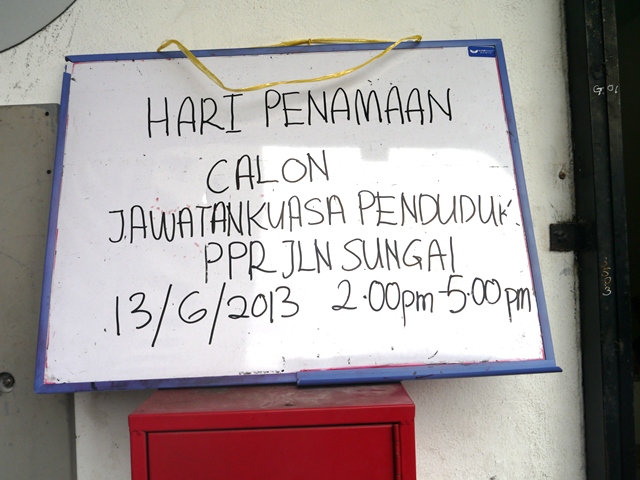 HARI PENAMAAN
CALON
JAWATANKUASA PENDUDUK
PPR JLN SUNGAI
13/6/2013 2.00pm-5.00pm